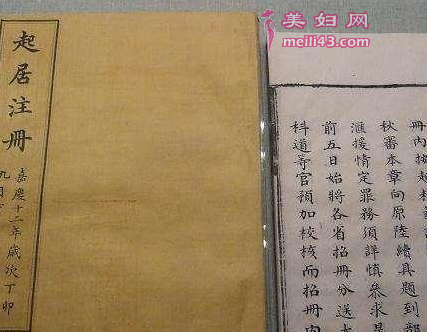 美妇网
meili43.com
起居注冊
嘉慶十二年歲次丁卯
九月
冊內
秋審本章向原陸續具題到部
滙援情定罪務須詳慎叅求是
前五日始將各省招冊分送
科道等官預加校核而招冊內